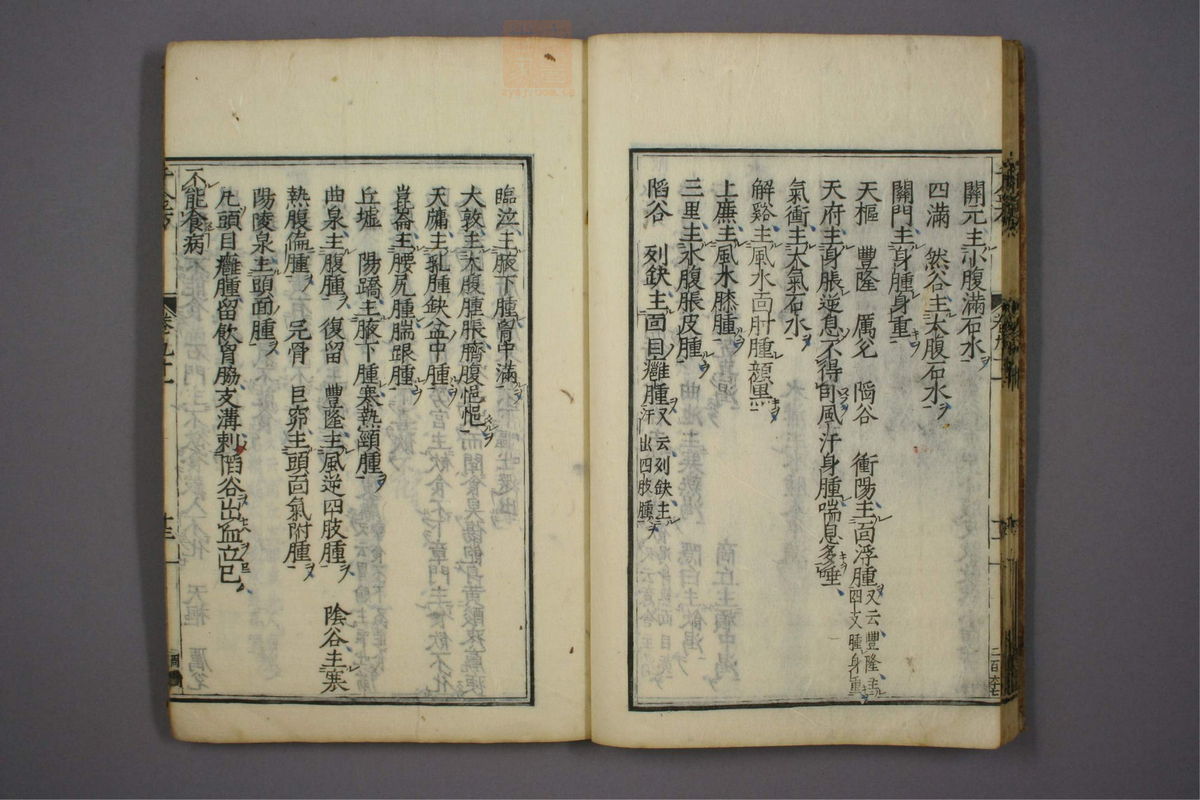 關元主小腹滿石水
四滿 然谷主大腹石水
關門主身腫身重
天樞 豐隆 厲兌 陷谷 衝陽主面浮腫又云豐隆主四支腫身重
天府主身脹逆息不得臥風汗身腫喘息多唾
氣衝主大氣石水
解谿主風水面胕腫顏黑
上廉主風水膝腫
三里主水腹脹皮腫
陷谷 列缺主面目癰腫又云列缺主汗出四肢腫
卷九十一
二百六十七
臨泣主腋下腫胷中滿
大敦主大腹腫脹臍腹悒悒
天牖主乳腫缺盆中腫
崑崙主腰尻腫腨跟腫
丘墟 陽蹻主腋下腫寒熱頸腫
曲泉主腹腫 復留 豐隆主風逆四肢腫 陰谷主寒
熱腹偏腫 完骨 巨窌主頭面氣胕腫
陽陵泉主頭面腫
凡頭目癰腫留飲胷脇支滿刺陷谷出血立已
不能食病
千金方
卷九十一
十三